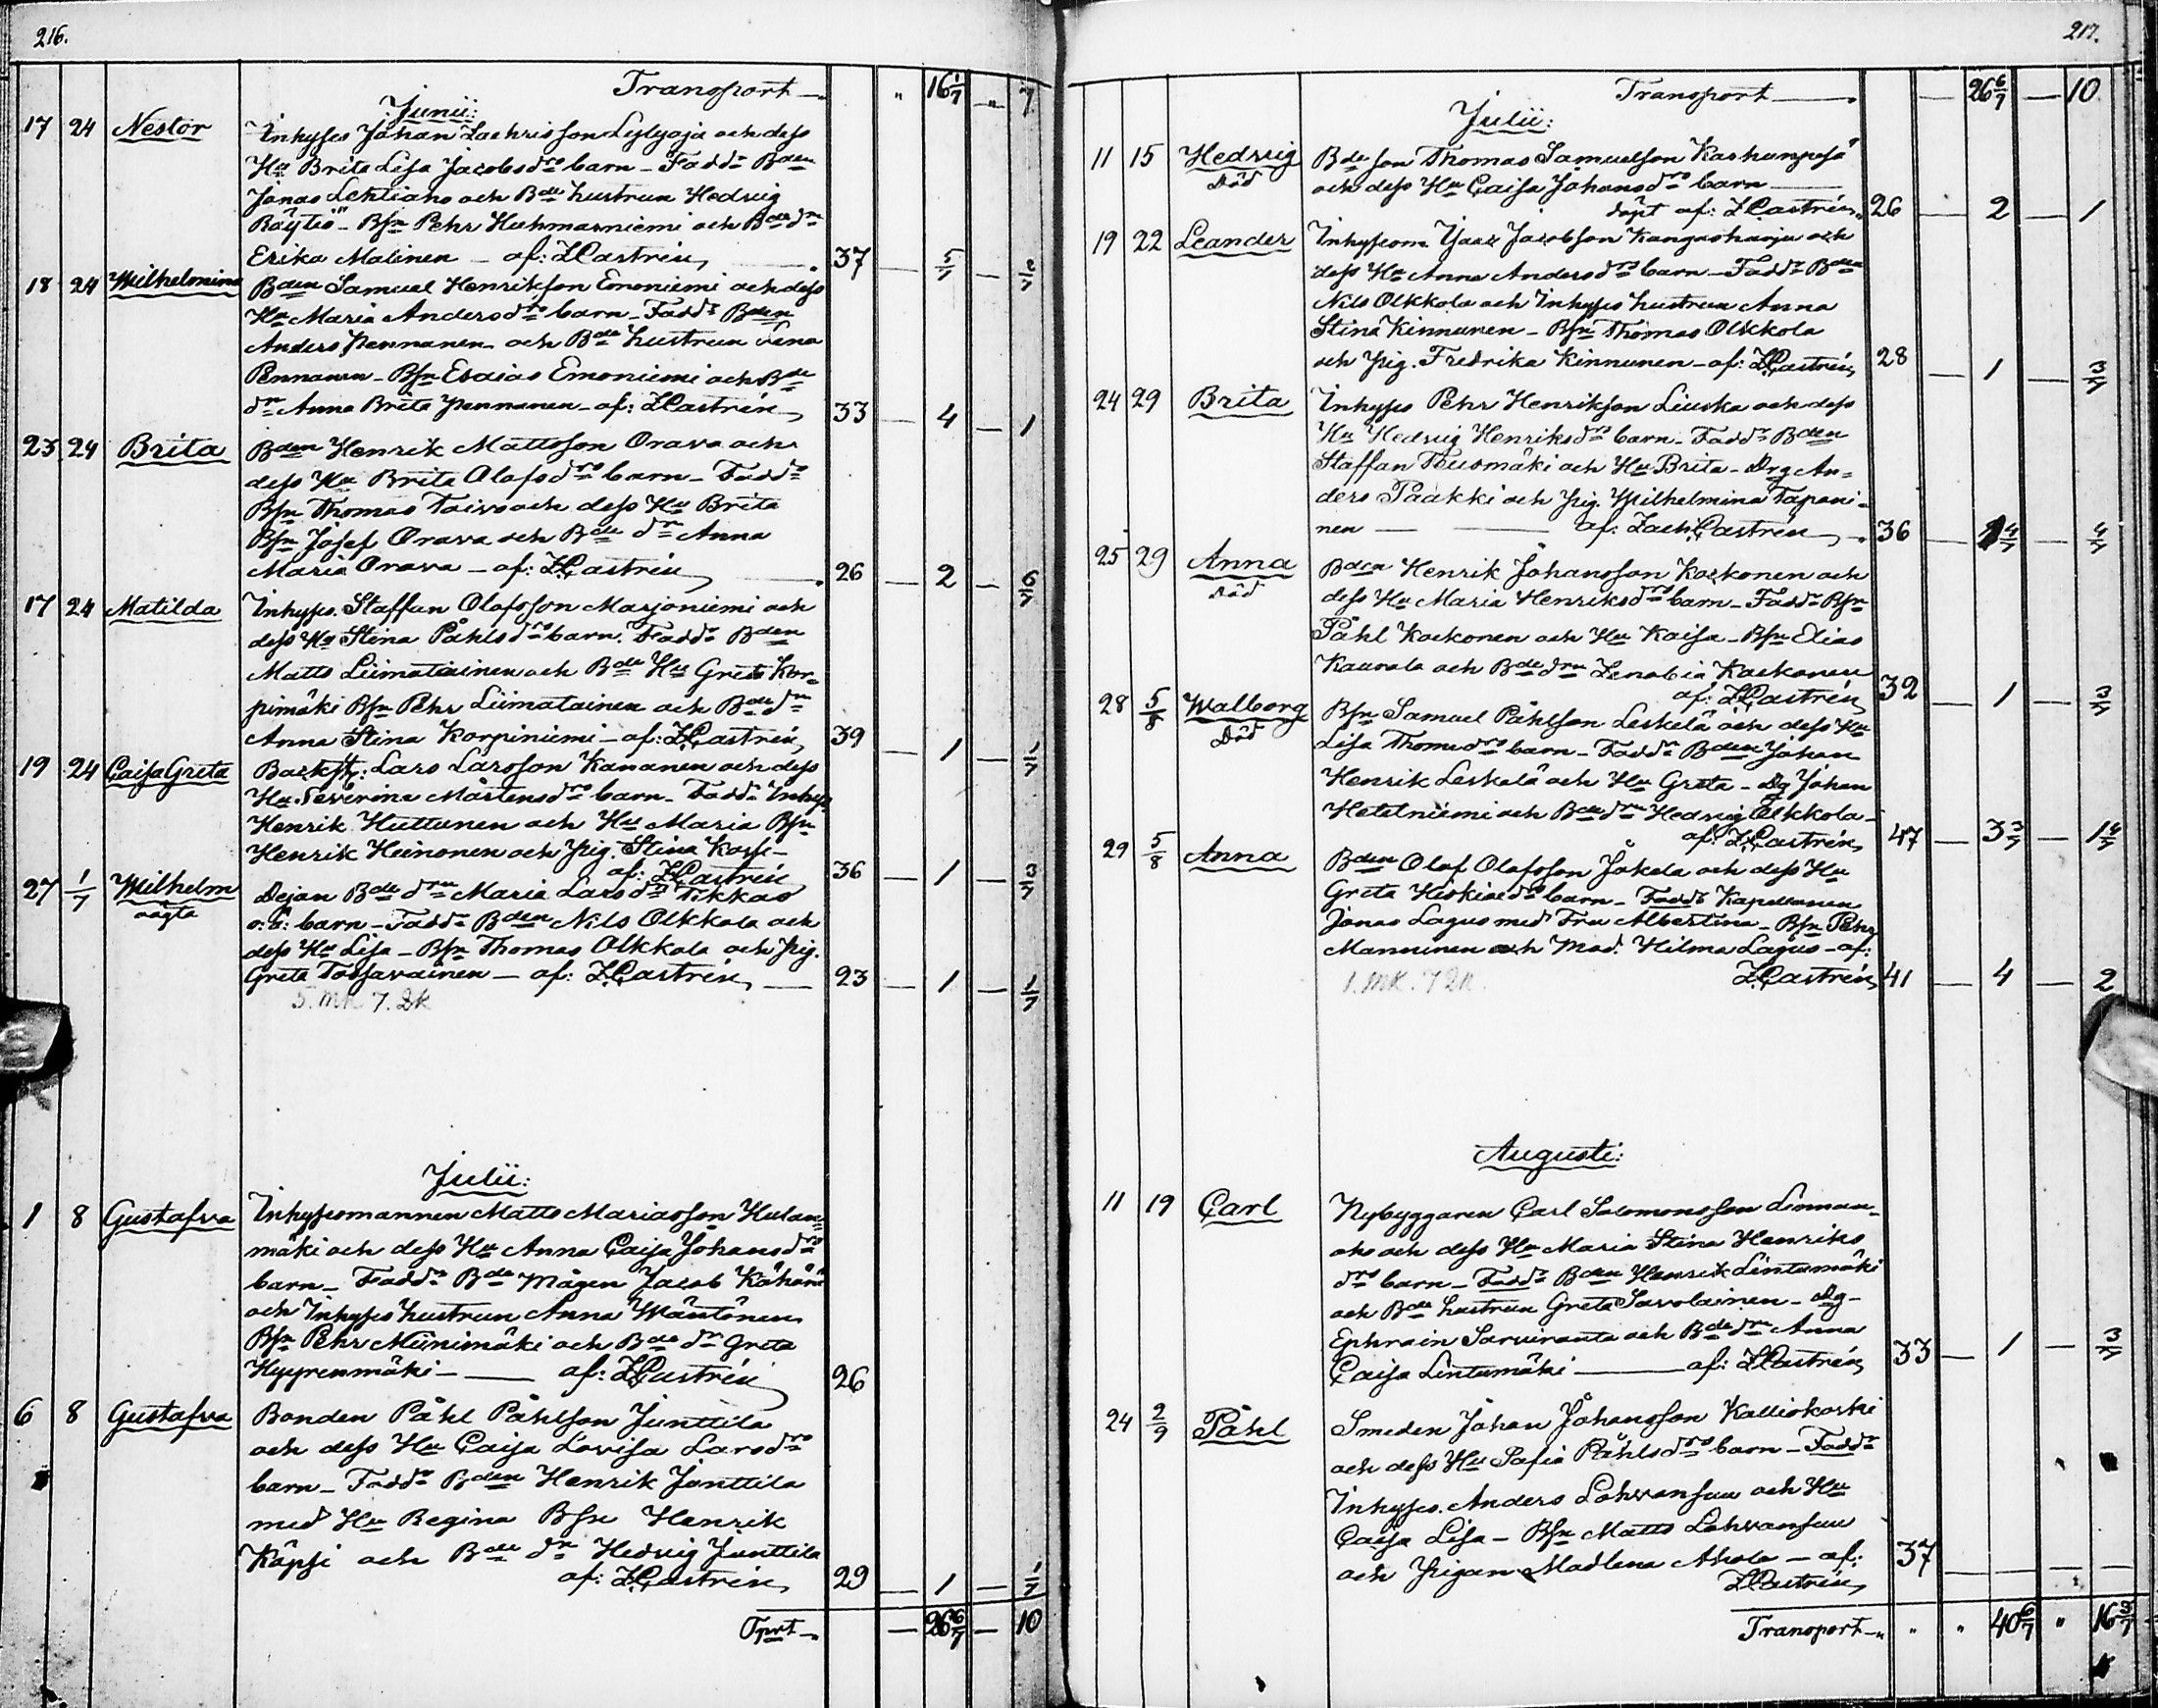 216.
Transport —
" 16 1/7 " 7
Junii:
17 24 Nestor Inhyses Johan Lachrisson Leylyoja och dess
Hu Brita Lisa Jacobsdrs barn – Faddr Bden
Jonas Lehtiaho och Bde hustrun Hedvig
Röytiö – Bsn Pehr Huhmarniemi och Bde dn
Erika Malinen – af: ZCastrén, 37 — 5/7 —
18 24 Wilhelmina Bden Samuel Henrikson Emoniemi och dess
Hu Maria Andersdrs barn – Faddr Bden
Anders Pennanen och Bde hustrun Lena
Pennanen – Bsn Esaias Emoniemi och Bde
dn Anna Brita Pennanen – af: ZCastrén 33 — 4 — 1
23 24 Brita Bden Henrik Mattsson Orava och
dess Hu Brita Olofsdrs barn – Faddr
Bsn Thomas Toivo och dess Hu Brita
Bsn Josef Orava och Bde dn Anna
Maria Orava – af: ZCastrén 26 — 2 — 6/7
17 24 Matilda Inhyses. Staffan Olofsson Marjoniemi och
dess Hu Stina Påhlsdrs barn. Faddr Bden
Matts Liimatainen och Bde Hu Greta Kor-
pimäki Bsn Pehr Liimatainen och Bde dn
Anna Stina Korpiniemi – af: ZCastrén, 39 — 1 — 1/7
19 24 Caisa Greta Lars Larsson Kananen och dess
Hu Severina Mårtensdrs barn – Faddr Inhys
Henrik Huttunen och Hu Maria Bsn
Henrik Heinonen och Pig. Stina Koss-
af: ZCastrén 36 — 1 — 3/7
27 1/7 Wilhelm Dejan Bde drn Maria Larsdr Tikkas
oägta o: ä: barn – Faddr Bden Nils Olkkola och
dess Hu Lisa – Bsn Thomas Olkkola och Pig.
Greta Tossavainen – af: ZCastrén, — 23 — 1 — 1/7
5. mk 7. Qk
Julii:
1 8 Gustafva Inhysesmannen Matts Mariasson Hulan-
mäki och dess Hu Anna Caisa Johansdrs
barn – Faddr Bde Mågen Jacob Kähöne
och Inhyses hustrun Anna Wäntönen
Bsn Pehr Miinimäki och Bde dn Greta
Hyyrenmäki – — af: ZCastrén 26
6 8 Gustafva Bonden Påhl Påhlson Junttila
och dess Hu Caisa Lovisa Larsdrs
barn – Faddr Bden Henrik Junttila
med Hu Regina Bsn Henrik
Käpsi och Bde dn Hedvig Junttila
af: ZCastrén, 29 — 1 — 1/7
Tprt — — 26 6/7 — 10
217.
Transport — — 26 6/7 — 10
Julii:
11 15 Hedvig Bde son Thomas Samuelson Karhunpesä
Död och dess Hu Caisa Johansdrs barn —
döpt af: ZCastrén, 26 — 2 — 1
19 22 Leander Inhysesm. Isak Jacobson Kangasharju och
dess Hu Anna Andersdrs barn – Faddr Bden
Nils Olkkola och Inhyses hustrun Anna
Stina Kinnunen – Bsn Thomas Olkkola
och Pig. Fredrika Kinnunen – af: ZCastrén, 28 — 1 — 3/7
24 29 Brita Inhyses Pehr Henrikson Liuska och dess
Hu Hedvig Henriksdrs barn – Faddr Bden
Staffan Teusmäki och Hu Brita – Drg An-
ders Pääkki och Pig. Wilhelmina Tapani-
nen — — af: Zach: Castrén — 36 — 4/7 — 4/7
25 29 Anna Bden Henrik Johansson Koskonen och
Död dess Hu Maria Henriksdrs barn – Faddr Bsn
Påhl Koskonen och Hu Kaisa – Bsn Elias
Kaurala och Bde drn Zenobia Koskonen
af: ZCastrén 32 — 1 — 3/7
28 5/8 Walborg Bsn Samuel Påhlson Leskelä och dess Hu
Död Lisa Thomsdrs barn – Faddr Bden Johan
Henrik Leskelä och Hu Greta – Dg Johan
Hetetniemi och Bde drn Hedvig Olkkola –
af: ZCastrén, 47 — 3 3/7 — 1 4/7
29 5/8 Anna Bden Olof Olofsson Jokela och dess Hu
Greta Hiskiaedrs barn – Faddr Kapellanen
Jonas Lagus med Fru Albertina – Bsn Pehr
Manninen och Mad. Hilma Lagus – af:
ZCastrén 41 — 4 — 2
1. mk. 7 2k.
Augusti:
11 19 Carl Nybyggaren Carl Salomonsson Linnan-
aho och dess Hu Maria Stina Henriks
drs barn – Faddr Bden Henrik Lintumäki
och Bde hustrun Greta Savolainen – Dg –
Ephraim Sarviranta och Bde drn Anna
Caisa Lintumäki — af: ZCastrén, 33 — 1 — 3/7
24 2/9 Påhl Smeden Johan Johansson Kalliokoski
och dess Hu Sofia Påhlsdrs barn – Faddr
Inhyses. Anders Lohvansuu och Hu
Caisa Lisa – Bsn Matts Lohvansuu
och Pigan Madlena Ahola – af: 37
ZCastrén,
Transport — " " 40 6/7 "